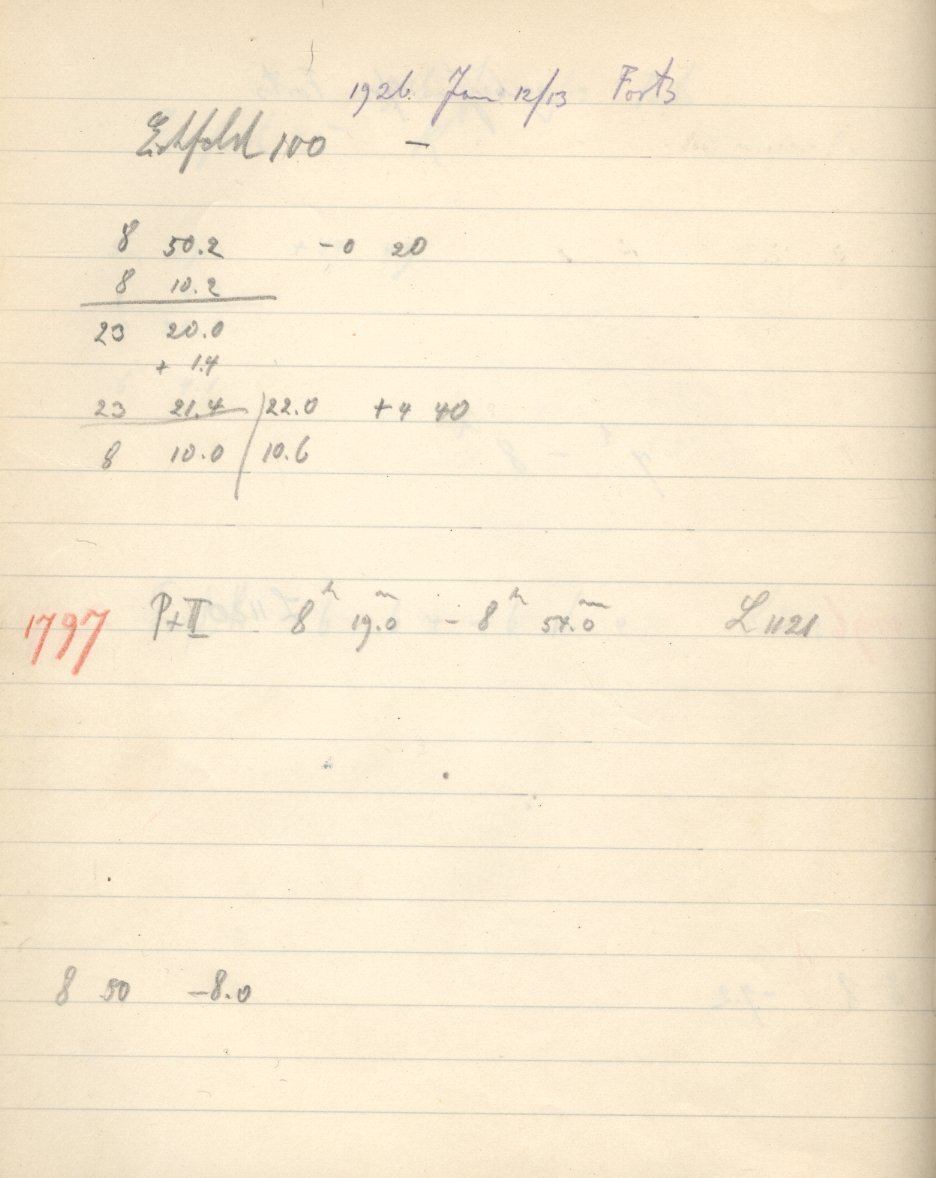 1926. Jan 12/13 Forts
Eichfeld 100 -
8 50.2 - 0 20
8 10.2
23 20.0
+ 1.4
23 21.4 / 22.0 + 4 40
8 10.0 / 10.6
1797 P+II 8h 19.0m - 8h 54.0m L 1121
8 50 -8.0